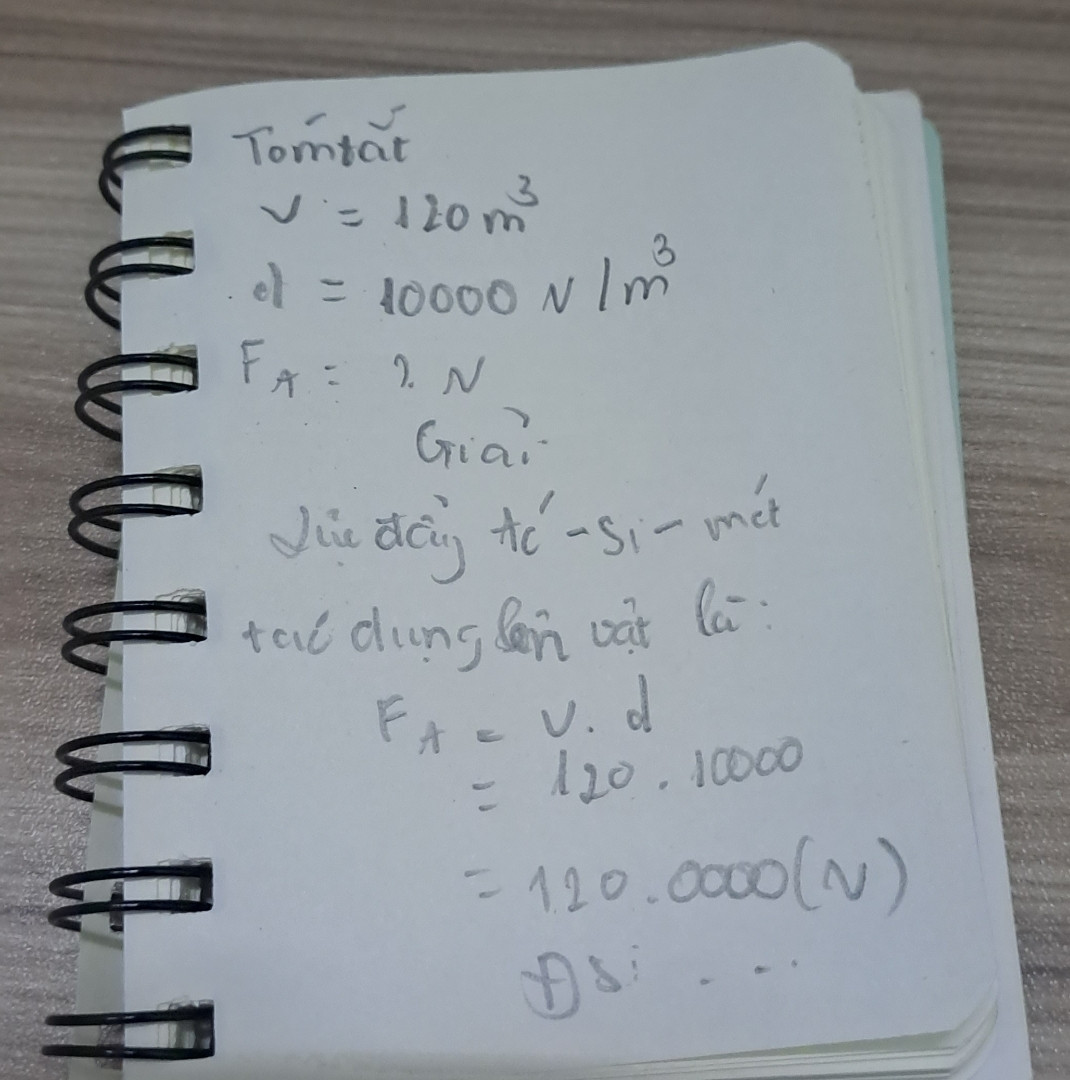 Tóm tắt
V = 120 m³
d = 10000 N/m³
F_A = ? N
Giải
Lực đẩy Ác-si-mét
tác dụng lên vật là:
F_A = V. d
= 120. 10000
= 120.0000(N)
Đs: ...